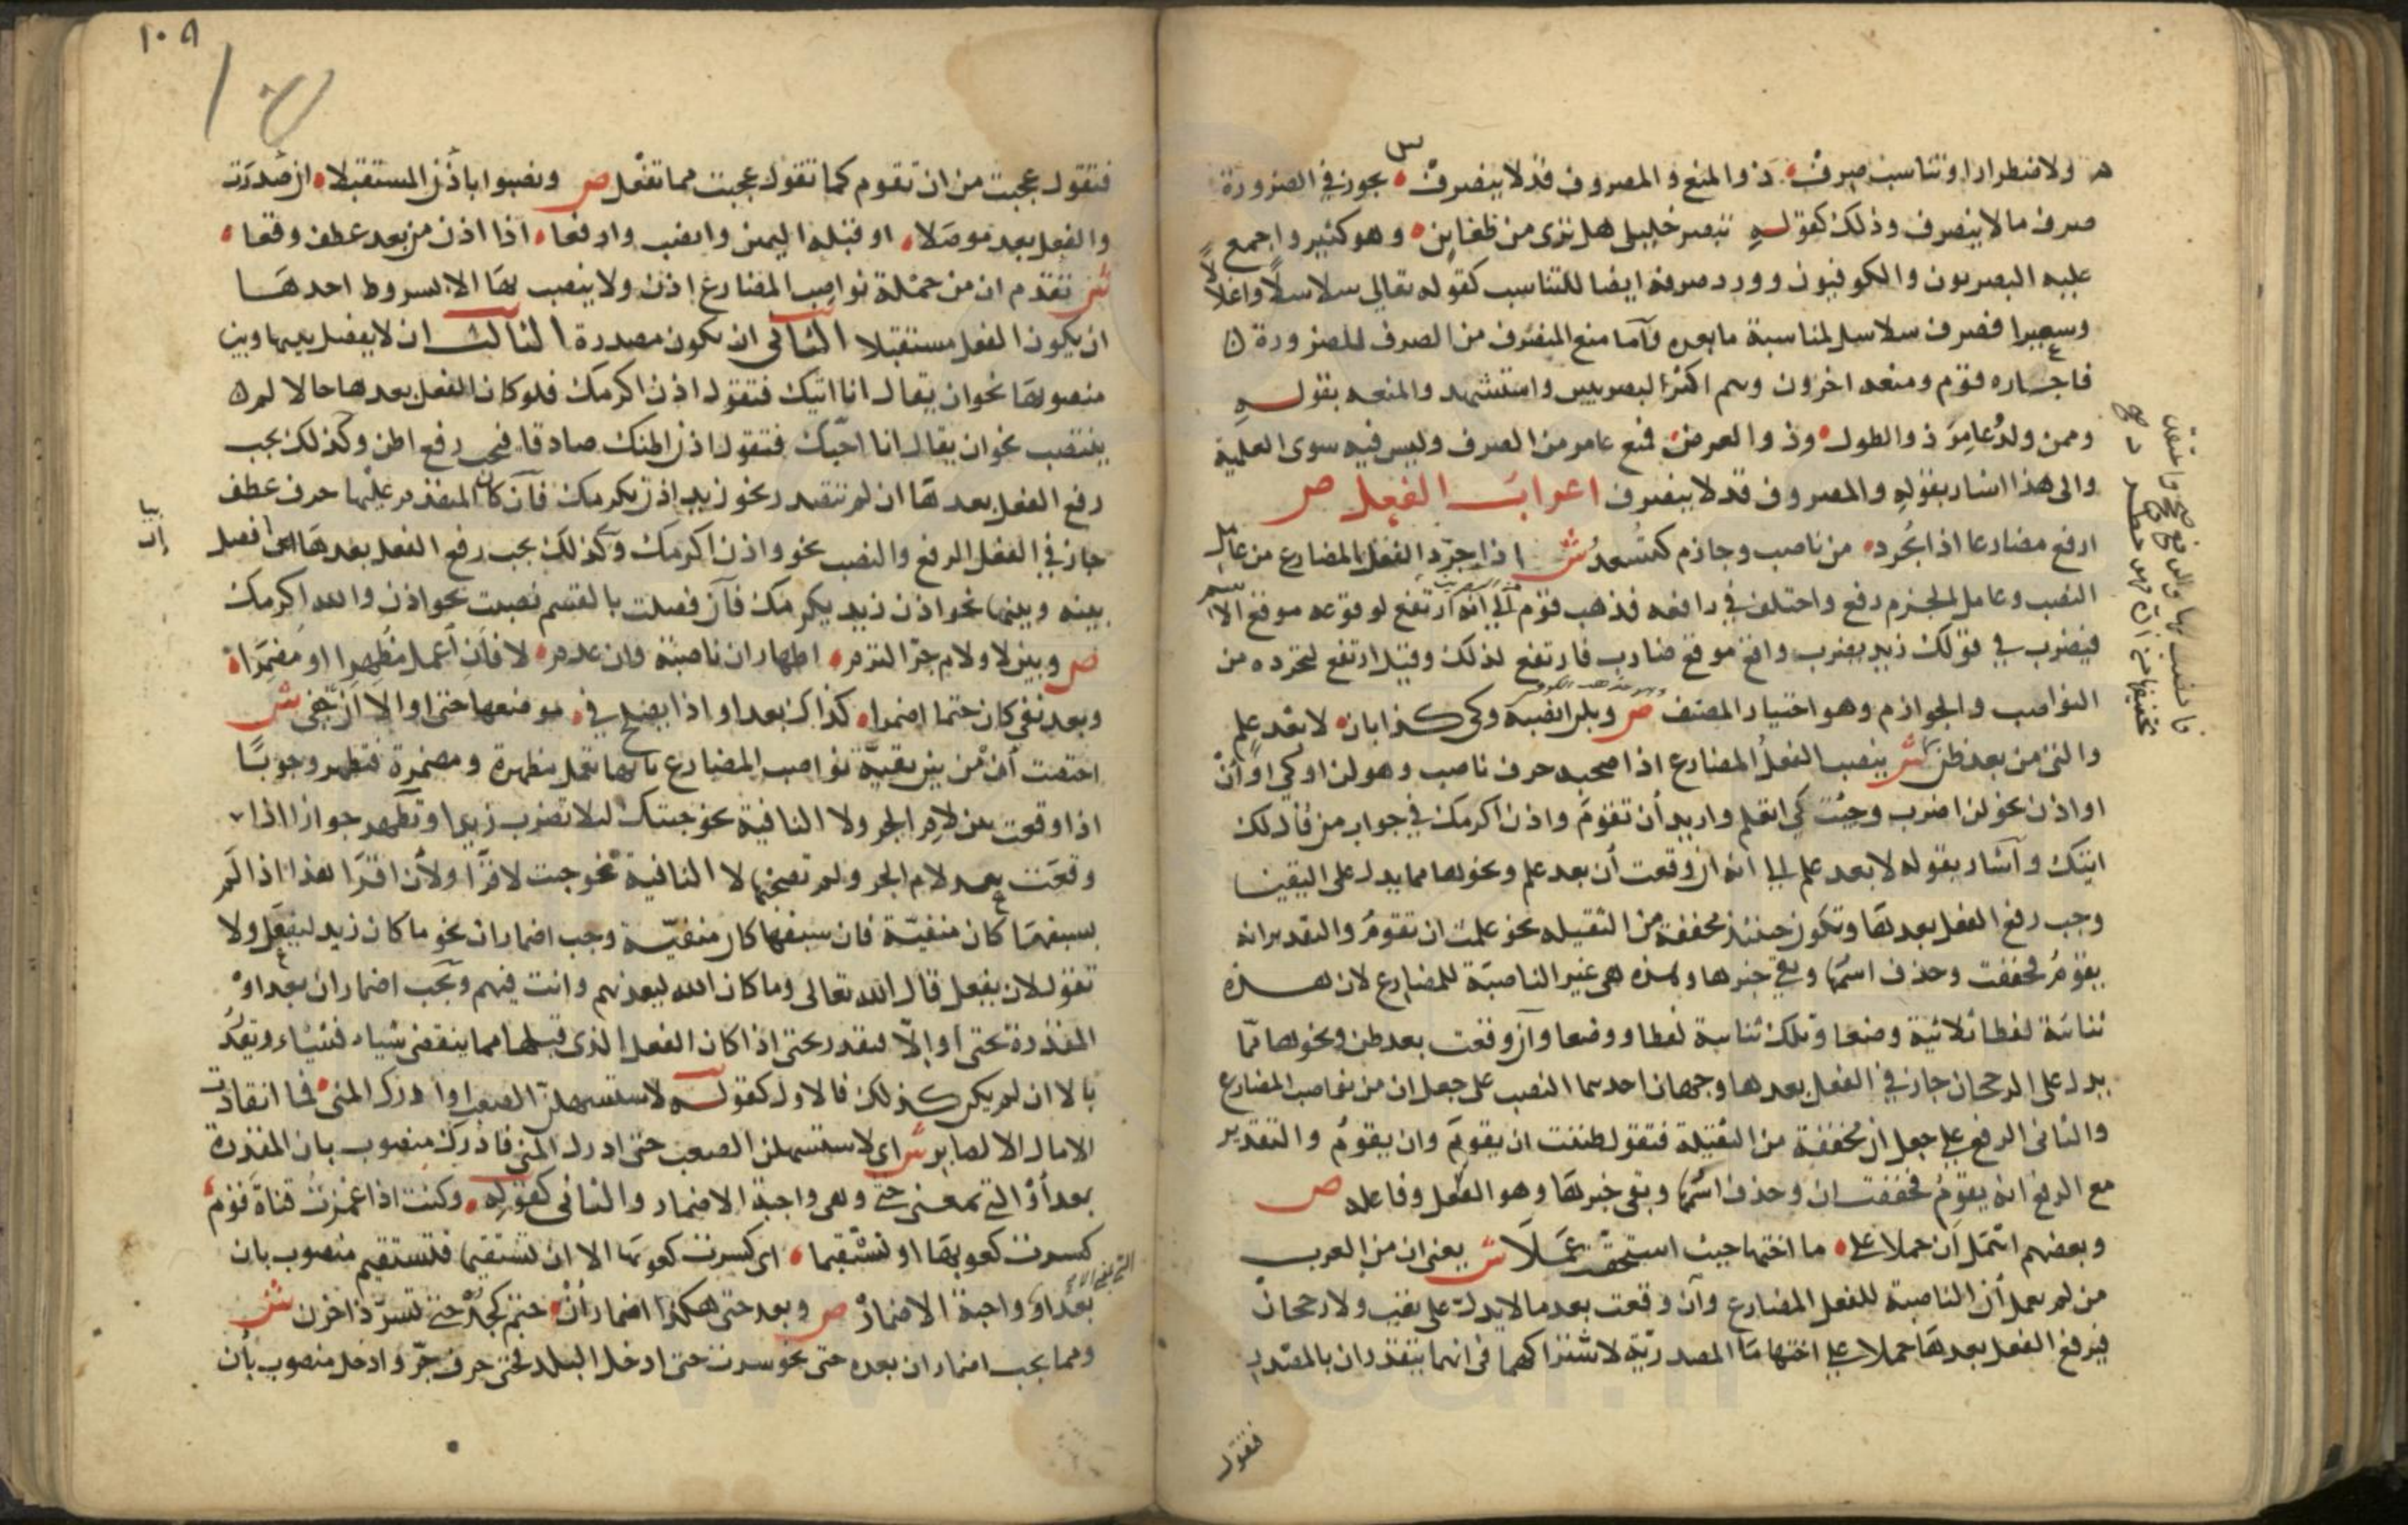 ولاضطرار او تناسب صرف ذو المنع والمصروف قد لا ينصرف س يجوز في الضرورة
صرف ما لا ينصرف وذلك كقوله تبصر خليلي هل ترى من ظغاين وهو كثير واجمع
عليه البصريون والكوفيون وورد صرفه ايضا للتناسب كقوله تعالى سلاسلا واغلالا
وسعيرا فصرف سلاسل لمناسبة ما بعده وآما منع المنصرف من الصرف للضرورة
فاجازه قوم ومنعه اخرون وهم اكثر البصريين واستشهد والمنعه بقوله
وممن ولدُ عامِرَ ذو الطول وذو العرض فمنع عامر من الصرف وليس فيه سوى العلمية
والى هذا اشار بقوله والمصروف قد لا ينصرف اعراب الفعل ص
ارفع مضارعا اذا يُجرد من ناصب وجازم كتُسعدُ ش اذا جرّد الفعل المضارع من عامل
النصب وعامل الجزم رفع واختلف في رافعه فذهب قوم الى انه ارتفع لوقوعه موقع الاسم
فيضرب في قولك زيد يضرب واقع موقع ضارب فارتفع لذلك وقيل ارتفع لتجرده من
النواصب والجوازم وهو اختيار المصنف ص وبلن انصبه وكي كذا بان لا بعد علم
والتي من بعد ظن ش ينصب الفعل المضارع اذا صحبه حرف ناصب وهو لن او كي او أنْ
او اذن نحو لن اضرب وجئت كي اتعلم واريد أن تقومَ واذن اكرمك في جواب من قال لك
اتيك وآشار بقوله لا بعد علم الى انه ان وقعت أن بعد علم ونحوها مما يدل على اليقين
وجب رفع الفعل بعدها وتكون حينئذ مخففة من الثقيلة نحو علمت ان تقومُ والتقدير انه
يقومُ فخففت وحذف اسمها وبقي خبرها وهذه هي غير الناصبة للمضارع لان هذه
ثنائية لفظا ثلاثية وضعا وتلك ثنائية لفظا ووضعا وآن وقعت بعد ظن ونحوها ممّا
يدل على الرجحان جاز في الفعل بعدها وجهان احدهما النصب على جعل ان من نواصب المضارع
والثاني الرفع على جعل ان مخففة من الثقيلة فتقول ظننت ان يقومَ وان يقومُ والتقدير
مع الرفع انه يقومُ فخففت ان وحذف اسمها وبقي خبرها وهو الفعل وفاعله ص
وبعضهم اهمل أن حملا على ما اختها حيث استحقت عملا ش يعني ان من العرب
من لم يعمل أن الناصبة للفعل المضارع وآن وقعت بعد ما لا يدل على يقين ولا رجحان
فيرفع الفعل بعدها حملا على اختها مَا المصدريّة لاشتراكهما في انهما يتقدران بالمصدر
فتقول
فتقول عجبت من ان تقوم كما تقول عجبت مما تفعل ص ونصبوا باذن المستقبلا ان صُدّرت
والفعل بعد موصلا او قبله اليمين وانصب وارفعا اذا اذن من بعد عطف وقعا
ش تقدم ان من جملة نواصب المضارع اذن ولا ينصب بها الا بشروط احدها
ان يكون الفعل مستقبلا الثاني ان تكون مصدرة الثالث ان لا يفصل بينها وبين
منصوبها نحو ان يقال انا اتيك فتقول اذن اكرمك فلو كان الفعل بعدها حالا لم
ينتصب نحو ان يقال انا احبّك فتقول اذن اظنك صادقا فيجب رفع اظن وكذلك يجب
رفع الفعل بعدها ان لم تتصدر نحو زيد اذن يكرمك فآن كان المتقدم عليها حرف عطف
جاز في الفعل الرفع والنصب نحو واذن اكرمك وكذلك يجب رفع الفعل بعدها ان فصل
بينه وبينها نحو اذن زيد يكرمك فآن فصلت بالقسم نصبت نحو اذن والله اكرمك
ص وبين لا ولام جرّ التزم اظهار ان ناصبة وان عدم لا فأن أعمل مظهرا او مضمرا
وبعد نفي كان حتما اضمرا كذاك بعد او اذا يصلح في موضعها حتى او الا أن خفي ش
اختصت أنْ من بين بقيّة نواصب المضارع بانها تعمل مظهرة ومضمرة فتظهر وجوبًا
اذا وقعت بين لام الجر ولا النافية نحو جئتك لئلا تضرب زيدا وتظهر جوازا اذا
وقعَت بعد لام الجر ولم تصحبها لا النافية نحو جئت لاقرأ ولأن اقرأ هذا اذا لَم
يسبقهَا كان منفيّة فان سبقها كان منفيّة وجب اضمار ان نحو ما كان زيد ليفعل ولا
تقول لان يفعل قال الله تعالى وما كان الله ليعذبهم وانت فيهم ويجب اضمار ان بعد اوْ
المقدرة بحتى او الّا فتقدر بحتى اذا كان الفعل الذي قبلها مما ينقضي شياء فشياء وتقدر
بالا ان لم يكن كذلك فالاول كقوله لاستسهلن الصعب او ادرك المنى فما انقادت
الامال الا لصابر ش اي لاستسهلن الصعب حتى ادرك المنى فأدرك منصوب بان المقدرة
بعد أوْ التي بمعنى حتى وهي واجبة الاضمار والثاني كقوله وكنت اذا غمزت قناة قوم
كسرت كعوبها او تستقيما اي كسرت كعوبها الا ان تستقيما فتستقيم منصوب بان
بعد او واجبة الاضمار ص وبعد حتى هكذا اضمار أنْ حتم كجُدْ حتى تسرّ ذا حزن ش
ومما يجب اضمار ان بعده حتى نحو سرت حتى ادخل البلد فحتى حرف جرّ وادخل منصوب بأن